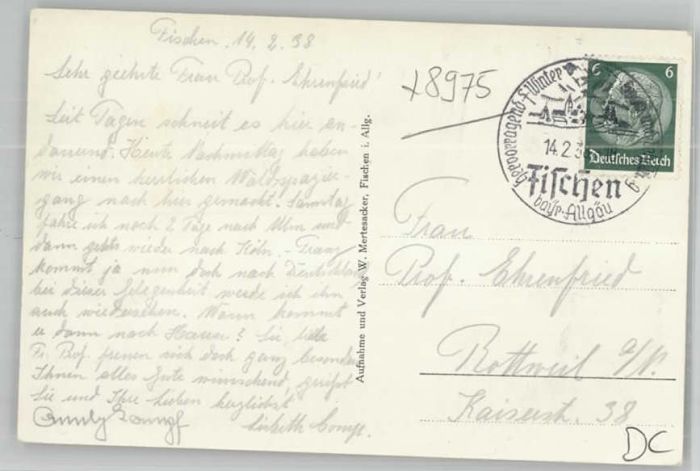 Fischen, 14.2.38
Sehr geehrte Frau Prof. Ehrenfried!
Seit Tagen schneit es hier an-
dauernd. Heute Nachmittag haben
wir einen herrlichen Waldspazier-
gang nach hier gemacht. Samstag
fahre ich noch 2 Tage nach Ulm und
dann gehts wieder nach Köln. - Franz
kommt ja nun doch nach Deutschland
bei dieser Gelegenheit werde ich ihn
auch wiedersehen. Wann kommt
er dann nach Hause? Sie, liebe
Fr. Prof freuen sich doch ganz besonders
Ihnen alles Gute wünschend, grüßt
Sie und Ihre Lieben herzlichst
Lisbeth
Aufnahme und Verlag W. Mertesacker, Fischen i. Allg.
+8975
Hervorragend f. Winter
14.2.38
Fischen
bayr. Allgäu
6 6
Deutsches Reich
Frau
Prof. Ehrenfried
Rottweil a/N.
Kaiserstr. 38
DC